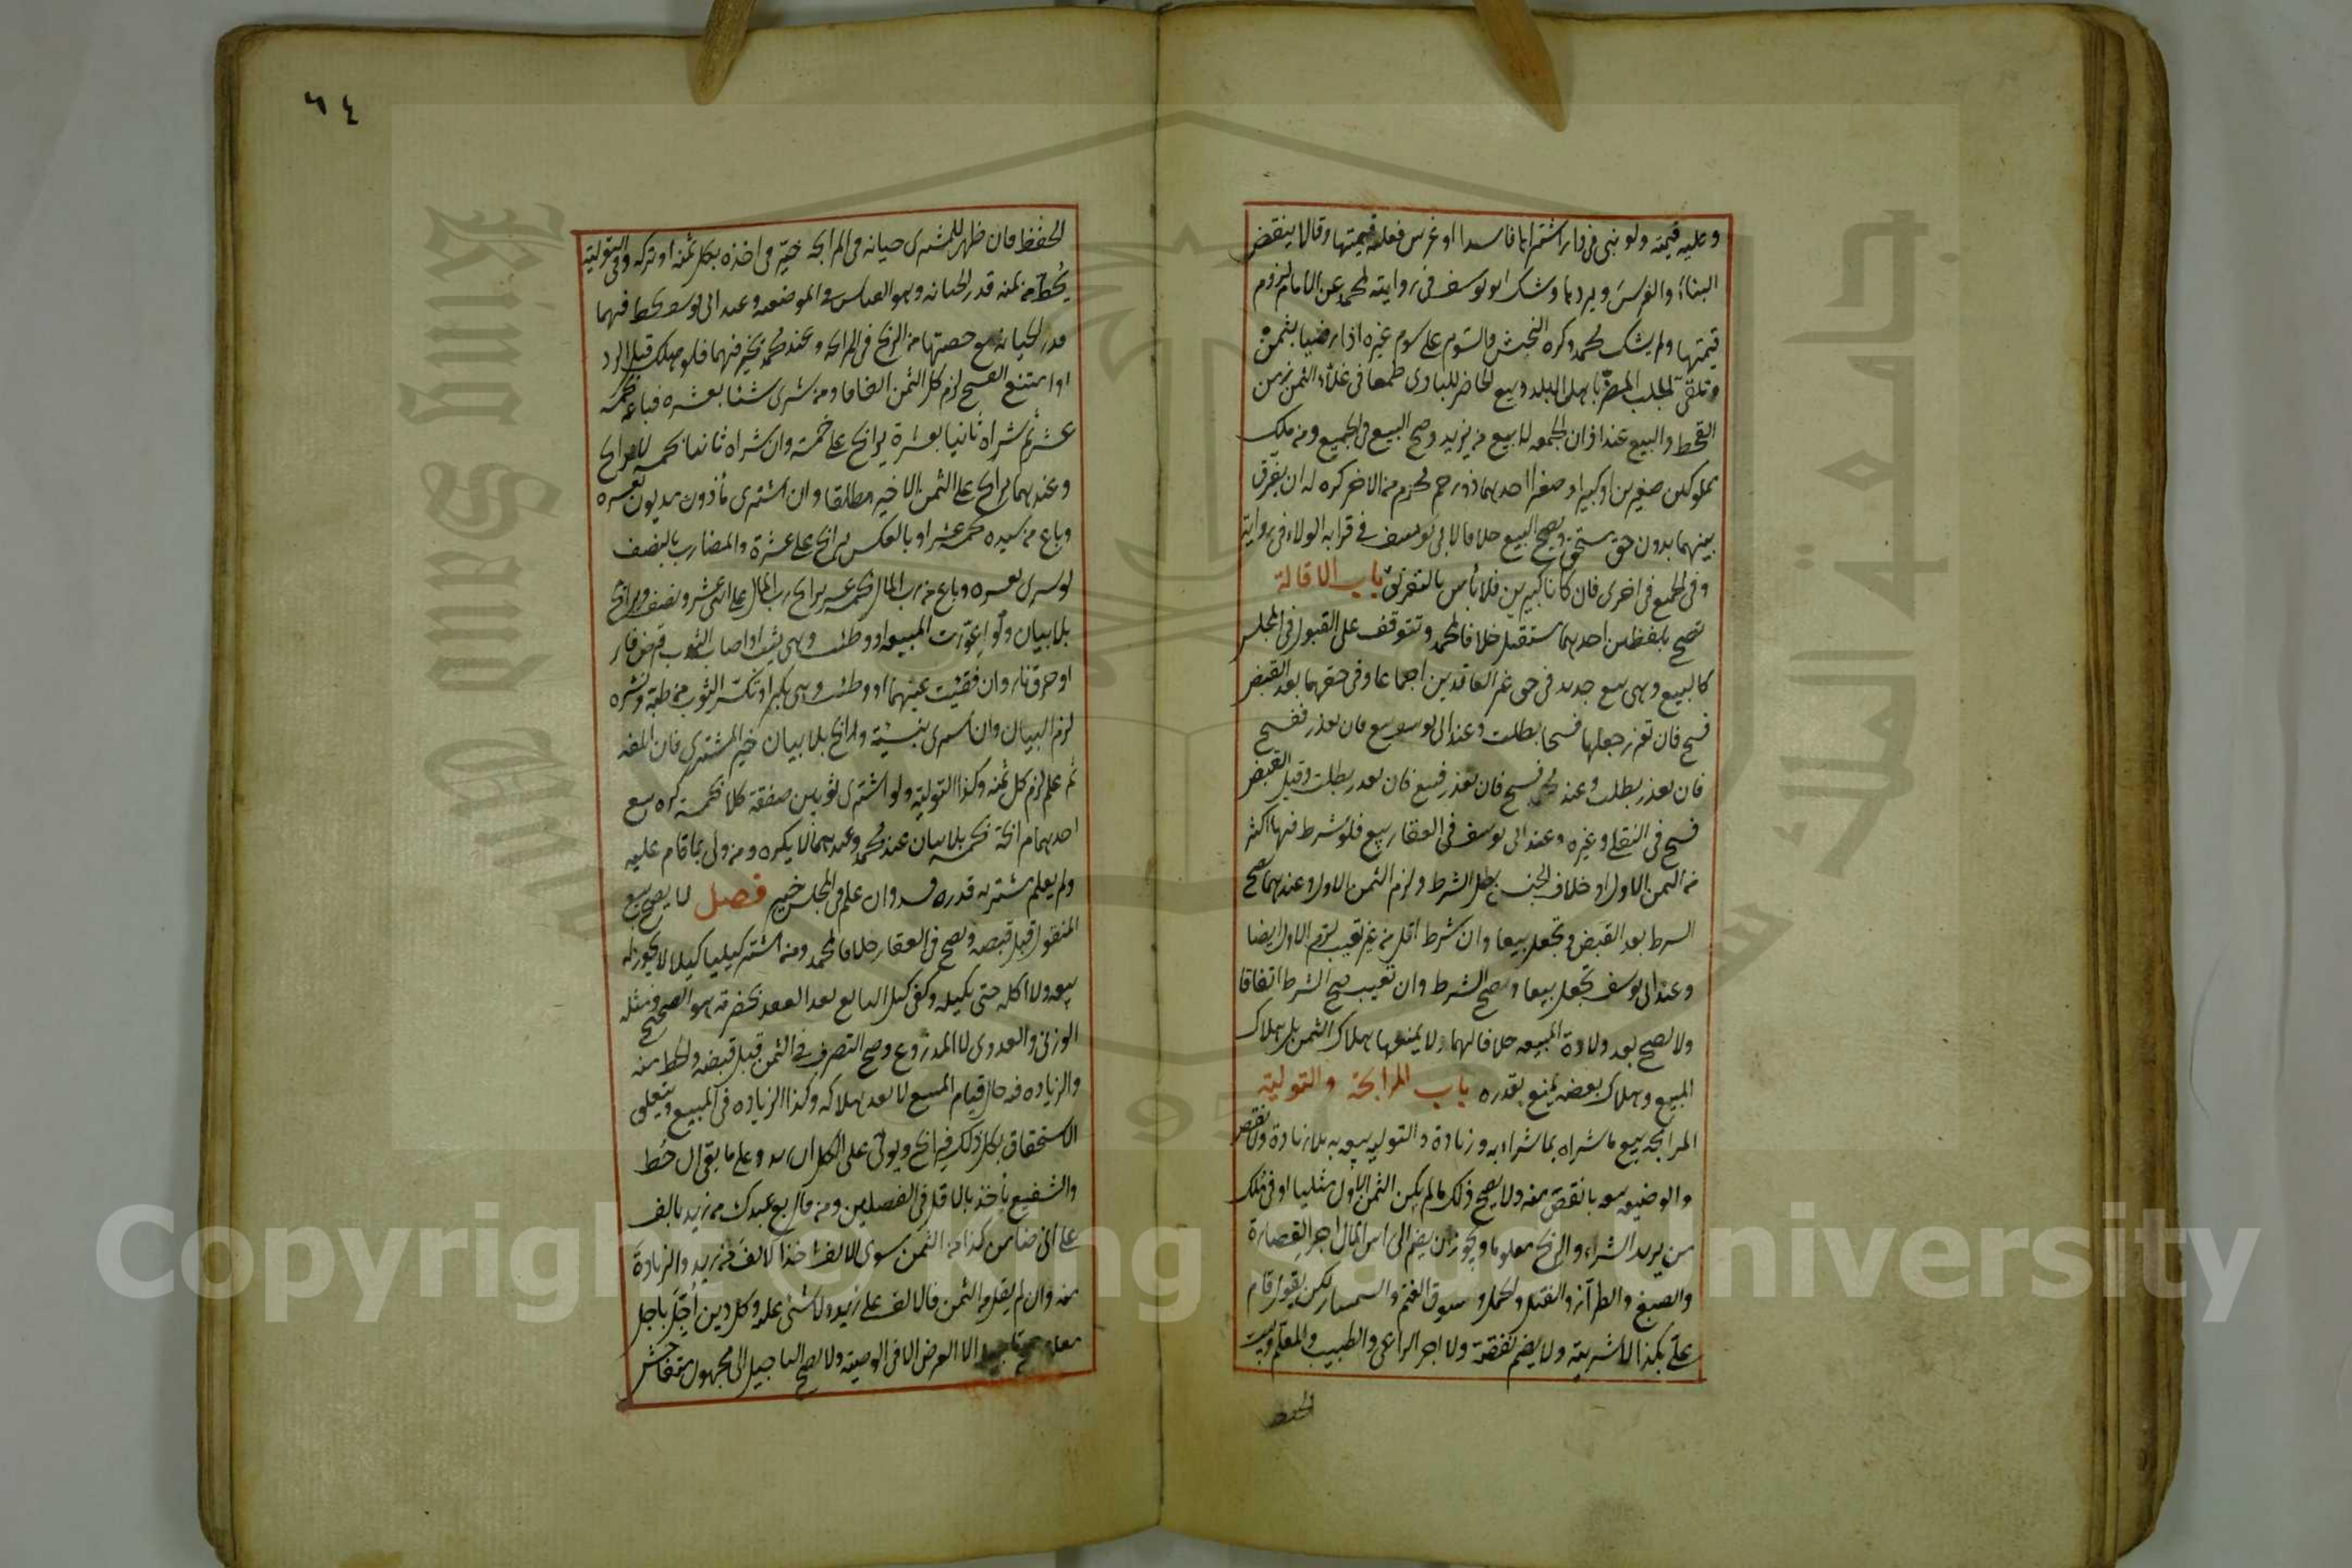 وعليه قيمته ولو بنى في دار اشتراها فاسدا او غرس فعليه قيمتها وقالا ينقض
البناء والغرس ويردها وشك ابو يوسف في روايته لمحمد عن الامام لزوم
قيمتها ولم يشك محمد وكره النجش والسوم على سوم غيره اذا رضيا بثمن
وتلقي الجلب المضر باهل البلد وبيع الحاضر للبادي طمعا في غلاء الثمن زمن
القحط والبيع عند اذان الجمعة لا بيع من يزيد وصح البيع في الجميع ومن ملك
مملوكين صغيرين او كبيرا وصغيرا احدهما ذو رحم محرم من الآخر كره له ان يفرق
بينهما بدون حق مستحق ويصح البيع خلافا لابي يوسف في قرابة الولاد في رواية
وفي الجميع في اخرى فان كانا كبيرين فلا بأس بالتفريق باب الاقالة
تصح بلفظين احدهما مستقبل خلافا لمحمد وتتوقف على القبول في المجلس
كالبيع وهي بيع جديد في حق غير العاقدين اجماعا وفي حقهما بعد القبض
فسخ فان تعذر جعلها فسخا بطلت وعند ابي يوسف بيع فان تعذر ففسخ
فان تعذر بطلت وعند محمد فسخ فان تعذر فبيع فان تعذر بطلت وقبل القبض
فسخ في النقلي وغيره وعند ابي يوسف في العقار بيع فلو شرط فيها اكثر
من الثمن الاول او خلاف الجنس بطل الشرط ولزم الثمن الاول وعندهما يصح
الشرط بعد القبض وتجعل بيعا وان شرط اقل من غير تعيب لزم الاول ايضا
وعند ابي يوسف تجعل بيعا ويصح الشرط وان تعيب صح الشرط اتفاقا
ولا تصح بعد ولادة المبيعة خلافا لهما ولا يمنعها هلاك الثمن بل هلاك
المبيع وهلاك بعضه يمنع بقدره باب المرابحة والتولية
المرابحة بيع ما شراه بما شراه به وزيادة والتولية بيعه به بلا زيادة ولا نقص
والوضيعة بيعه بانقص منه ولا يصح ذلك ما لم يكن الثمن الاول مثليا او في ملك
من يريد الشراء والربح معلوما ويجوز ان يضم الى رأس المال اجر القصارة
والصبغ والطراز والفتل والحمل وسوق الغنم والسمسار لكن يقول قام
علي بكذا لا اشتريته ولا يضم نفقته ولا اجر الراعي والطبيب والمعلم وبيت
الحفظ
٦٤
الحفظ فان ظهر للمشتري خيانة في المرابحة خير في اخذه بكل ثمنه او تركه وفي التولية
يحط من ثمنه قدر الخيانة وهو القياس في الوضيعة وعند ابي يوسف يحط فيهما
قدر الخيانة مع حصتها من الربح في المرابحة وعند محمد يخير فيهما فلو هلك قبل الرد
او امتنع الفسخ لزم كل الثمن اتفاقا ومن شرى شيئا بعشرة فباعه بخمسة
عشر ثم شراه ثانيا بعشرة يرابح على خمسة وان شراه ثانيا بخمسة لا يرابح
وعندهما يرابح على الثمن الاخير مطلقا وان اشترى مأذون مديون بعشرة
وباع من سيده بخمسة عشر او بالعكس يرابح على عشرة والمضارب بالنصف
لو شرى بعشرة وباع من رب المال بخمسة عشر يرابح رب المال على اثني عشر ونصف ويرابح
بلا بيان ولو اعورت المبيعة او وطئت وهي ثيب او اصاب الثوب قرض فار
او حرق نار وان فقئت عينها او وطئت وهي بكر او تكسر الثوب من طيه ونشره
لزم البيان وان اشترى بنسيئة ورابح بلا بيان خير المشتري فان اتلفه
ثم علم لزم كل ثمنه وكذا التولية ولو اشترى ثوبين صفقة كلا بخمسة كره بيع
احدهما مرابحة بخمسة بلا بيان عند محمد وعندهما لا يكره ومن ولى بما قام عليه
ولم يعلم مشتريه قدره فسد وان علم في المجلس خير فصل لا يصح بيع
المنقول قبل قبضه ويصح في العقار خلافا لمحمد ومن اشترى كيليا كيلا لا يجوز له
بيعه ولا اكله حتى يكيله وكفى كيل البائع بعد العقد بحضرته هو الصحيح ومثله
الوزني والعددي لا المذروع وصح التصرف في الثمن قبل قبضه والحط منه
والزيادة فيه حال قيام المبيع لا بعد هلاكه وكذا الزيادة في المبيع ويتعلق
الاستحقاق بكل ذلك فيرابح ويولي على الكل ان زيد وعلى ما بقي ان حط
والشفيع يأخذ بالاقل في الفصلين ومن قال بع عبدك من زيد بالف
على اني ضامن كذا من الثمن سوى الالف اخذ الالف من زيد والزيادة
منه وان لم يقل من الثمن فالالف على زيد ولا شيء عليه وكل دين اجل باجل
معلوم صح تأجيله الا القرض الا في الوصية ولا يصح التأجيل الى مجهول متفاحش